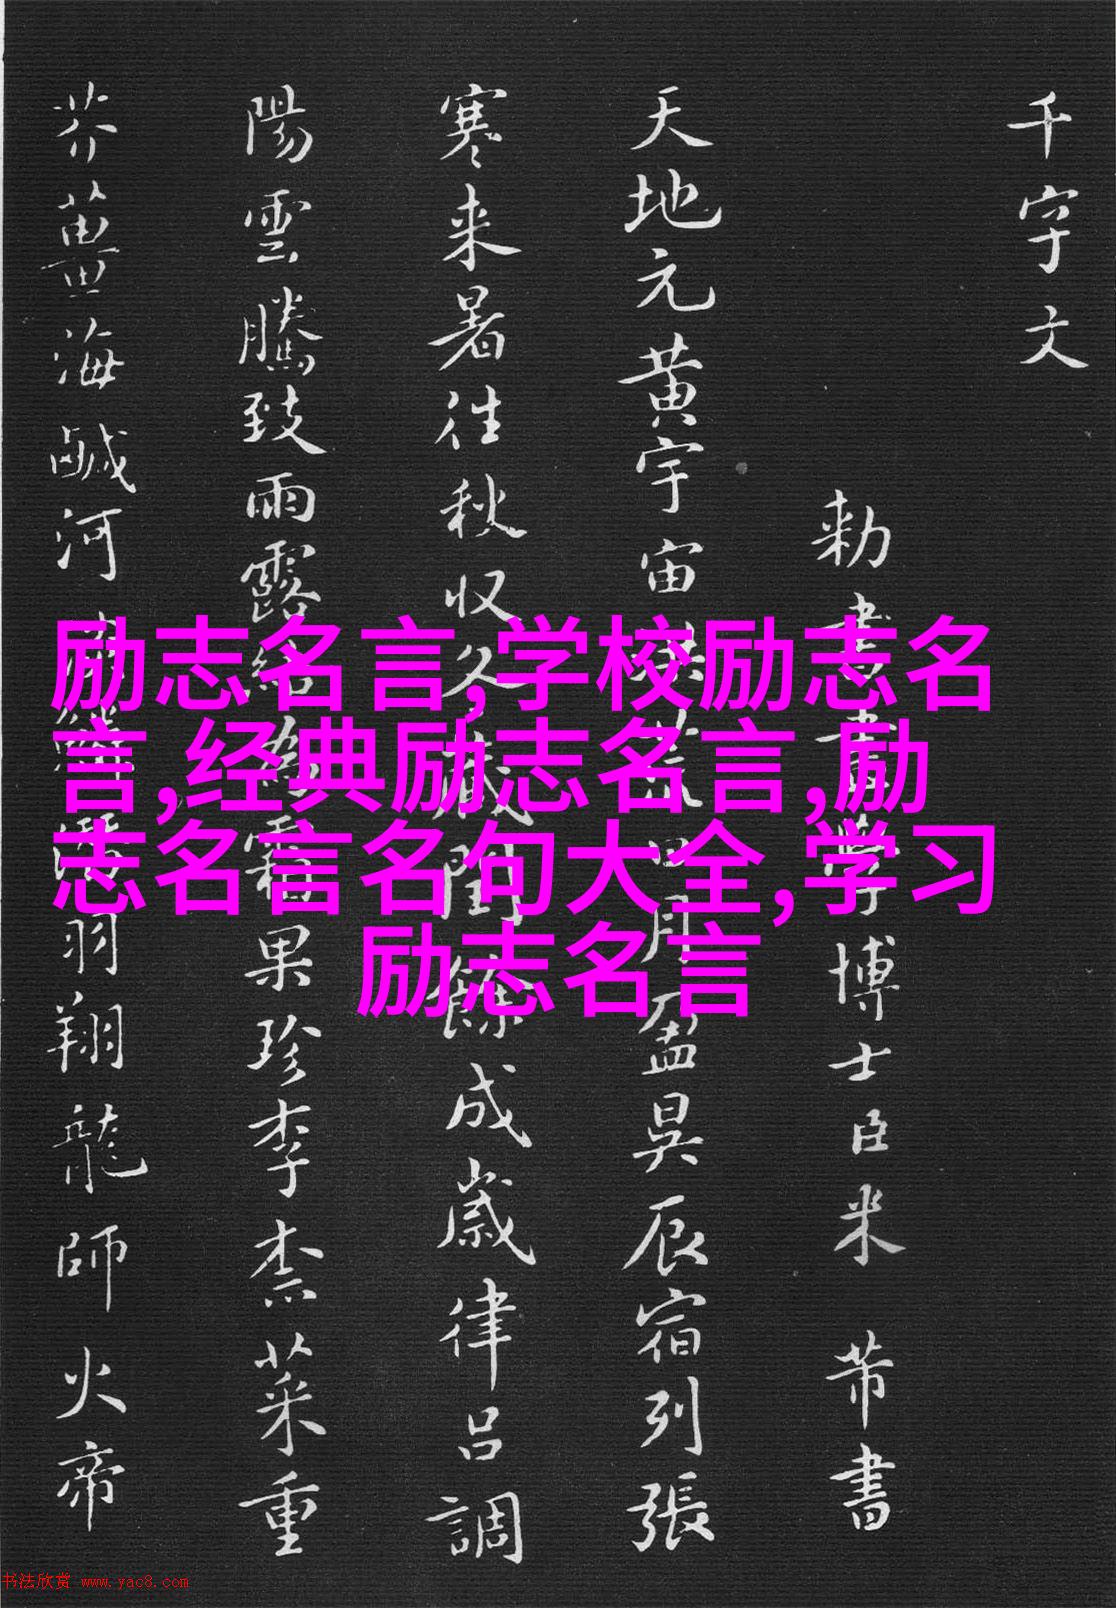 千字文
勑書書學博士臣米芾書
天地元黄宇宙洪荒日月盈昃辰宿列張
寒来暑往秋収冬藏閏餘成歲律吕調
陽雲騰致雨露結為霜果珍李柰菜重
芥薑海鹹河淡鱗潛羽翔龍師火帝
励志名言,学校励志名
言,经典励志名言,励
志名言名句大全,学习
励志名言
书法欣赏 www.yac8.com